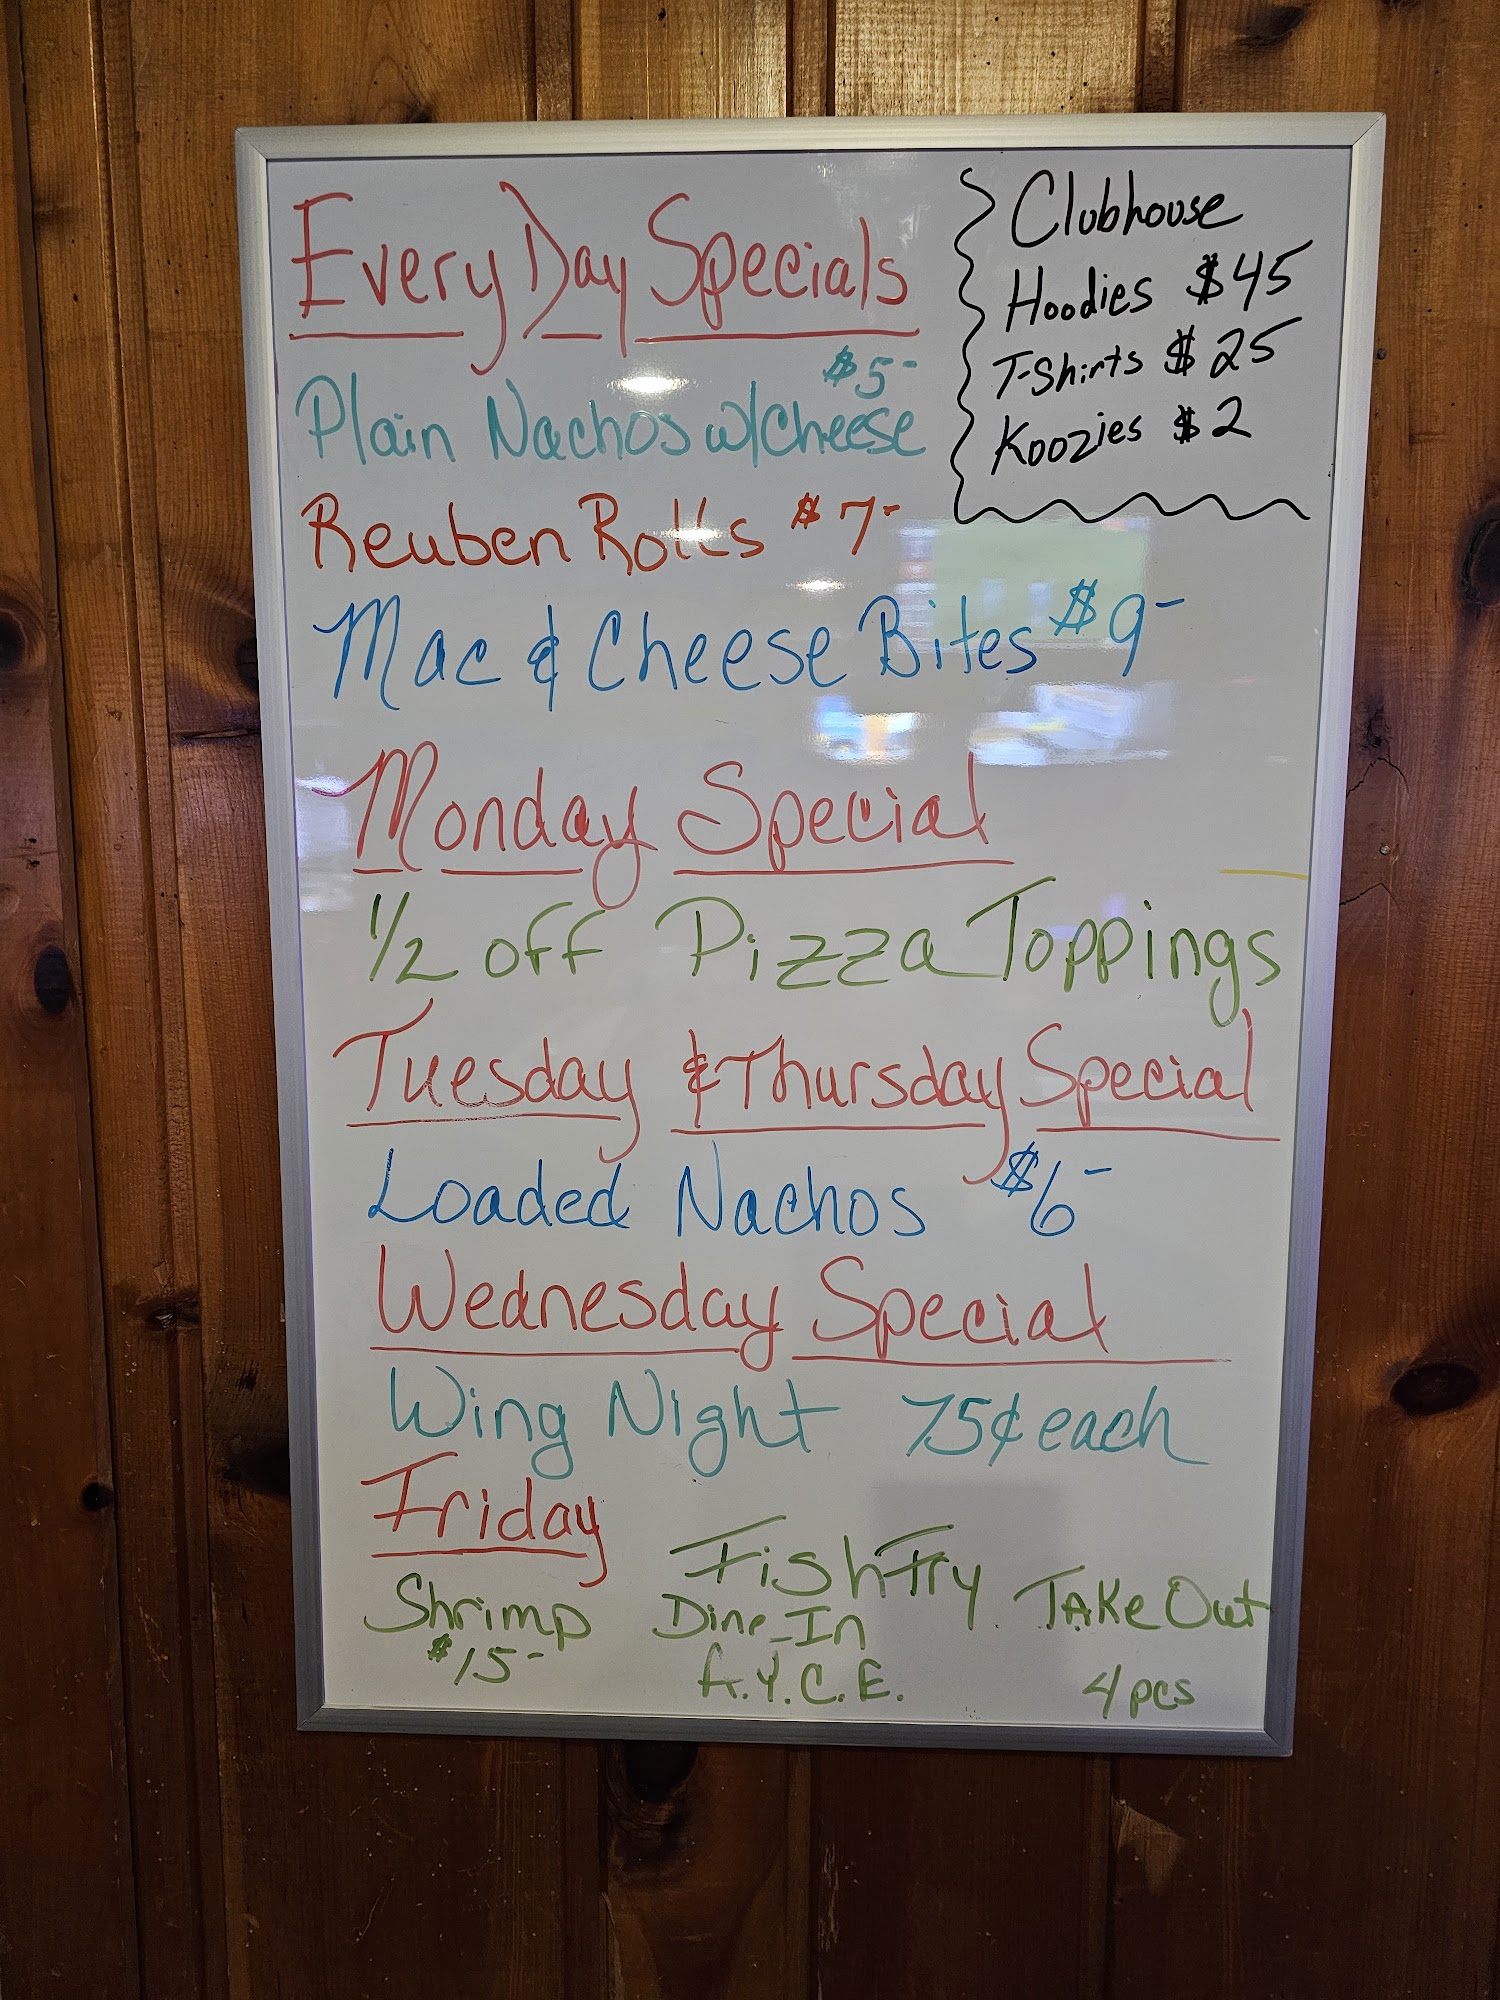 Every Day Specials
$5-
Plain Nachos w/cheese
Reuben Rolls $7-
Mac & Cheese Bites $9-
Clubhouse
Hoodies $45
T-Shirts $25
Koozies $2
Monday Special
1/2 off Pizza Toppings
Tuesday & Thursday Special
Loaded Nachos $6-
Wednesday Special
Wing Night 75¢ each
Friday
Shrimp
$15-
Fish Fry
Dine-In
A.Y.C.E.
Take Out
4 pcs